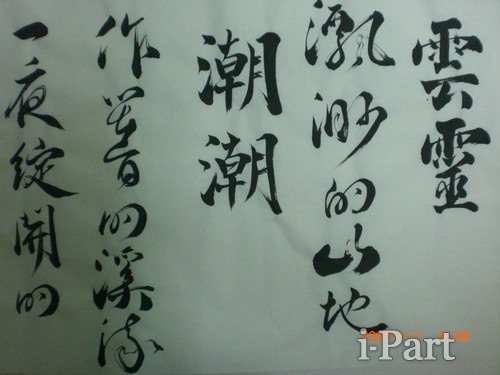 雲靈
飄渺的山地
潮潮
作響的溪流
一夜綻開的
i-Part